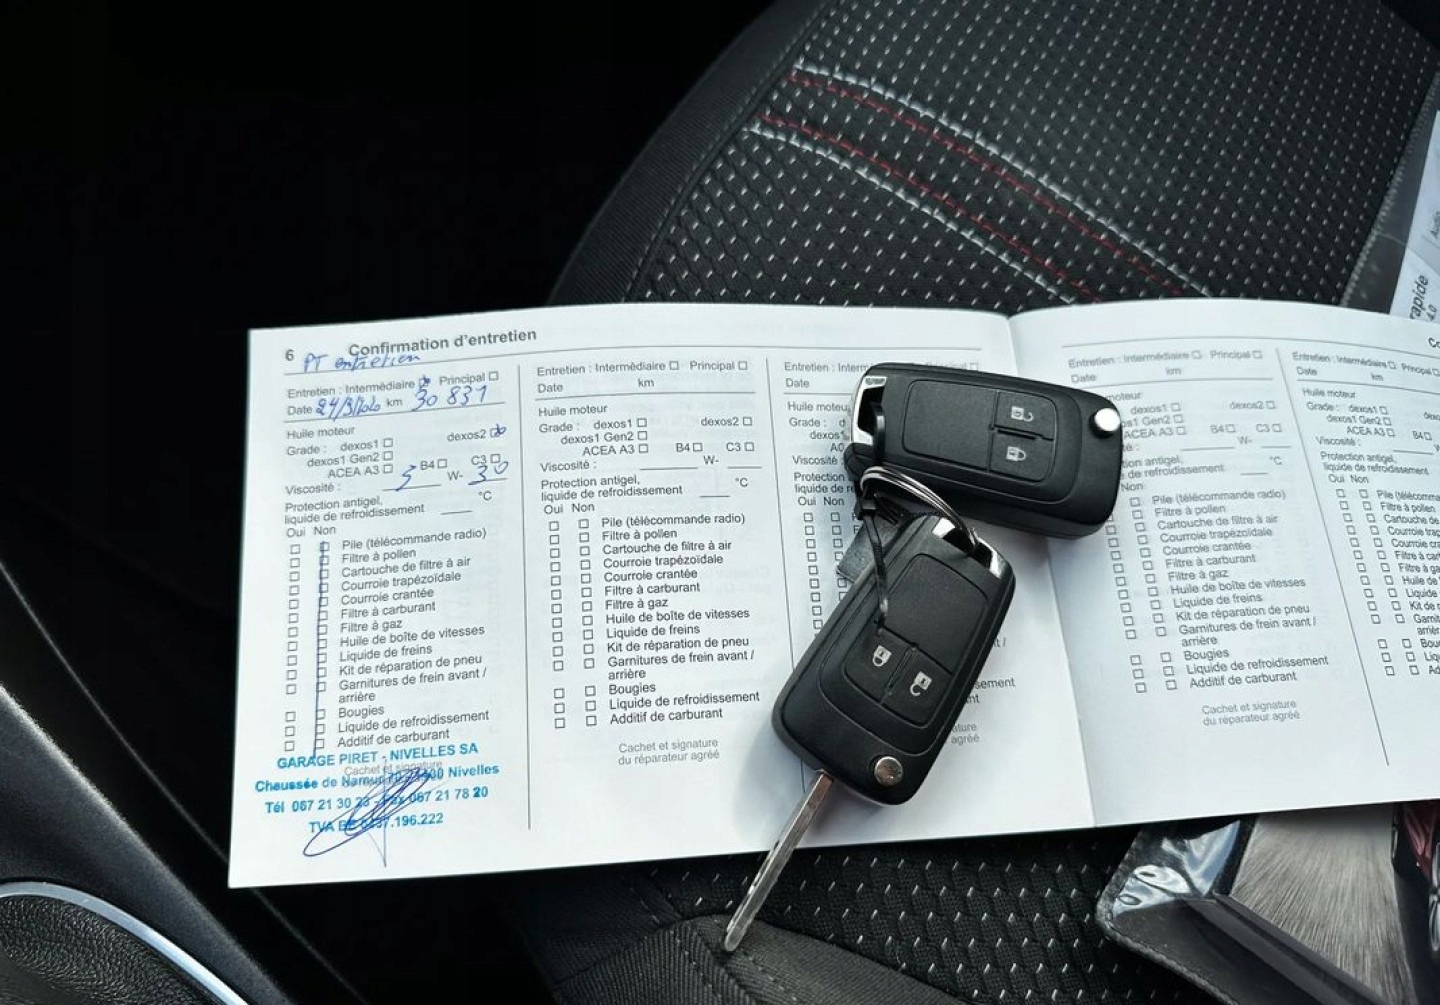 6 Confirmation d'entretien
PT entretien
Entretien : Intermédiaire Principal
Date 24/3/2020 km 30 831
Huile moteur
Grade : dexos1 dexos2
dexos1 Gen2
ACEA A3 B4 C3
Viscosité : 5 W- 30
Protection antigel,
liquide de refroidissement °C
Oui Non
Pile (télécommande radio)
Filtre à pollen
Cartouche de filtre à air
Courroie trapézoïdale
Courroie crantée
Filtre à carburant
Filtre à gaz
Huile de boîte de vitesses
Liquide de freins
Kit de réparation de pneu
Garnitures de frein avant /
arrière
Bougies
Liquide de refroidissement
Additif de carburant
GARAGE PIRET - NIVELLES SA
Cachet et signature
Chaussée de Namur Nivelles
Tél 067 21 30 - Fax 067 21 78 20
TVA .196.222
Entretien : Intermédiaire Principal
Date km
Huile moteur
Grade : dexos1 dexos2
dexos1 Gen2
ACEA A3 B4 C3
Viscosité : W-
Protection antigel,
liquide de refroidissement °C
Oui Non
Pile (télécommande radio)
Filtre à pollen
Cartouche de filtre à air
Courroie trapézoïdale
Courroie crantée
Filtre à carburant
Filtre à gaz
Huile de boîte de vitesses
Liquide de freins
Kit de réparation de pneu
Garnitures de frein avant /
arrière
Bougies
Liquide de refroidissement
Additif de carburant
Cachet et signature
du réparateur agréé
Entretien :
Date
Huile
Grade :
Viscosité
Protection
liquide de
Oui Non
Entretien : Intermédiaire Principal
Date km
dexos2
Gen2
ACEA A3 B4 C3
W-
antigel,
de refroidissement °C
Non
Pile (télécommande radio)
Filtre à pollen
Cartouche de filtre à air
Courroie trapézoïdale
Courroie crantée
Filtre à carburant
Filtre à gaz
Huile de boîte de vitesses
Liquide de freins
Kit de réparation de pneu
Garnitures de frein avant /
arrière
Bougies
Liquide de refroidissement
Additif de carburant
Cachet et signature
du réparateur agréé
Entretien : Intermédiaire Principal
Date km
Huile moteur
Grade : dexos1
dexos1 Gen2
ACEA A3 B4
Viscosité :
Protection antigel,
liquide de refroidissement
Oui Non
Pile (télécomm
Filtre à pollen
Cartouche de
Courroie
Courroie
Filtre à
Filtre à
Huile de
Liquide
Kit de
rapide
4.0